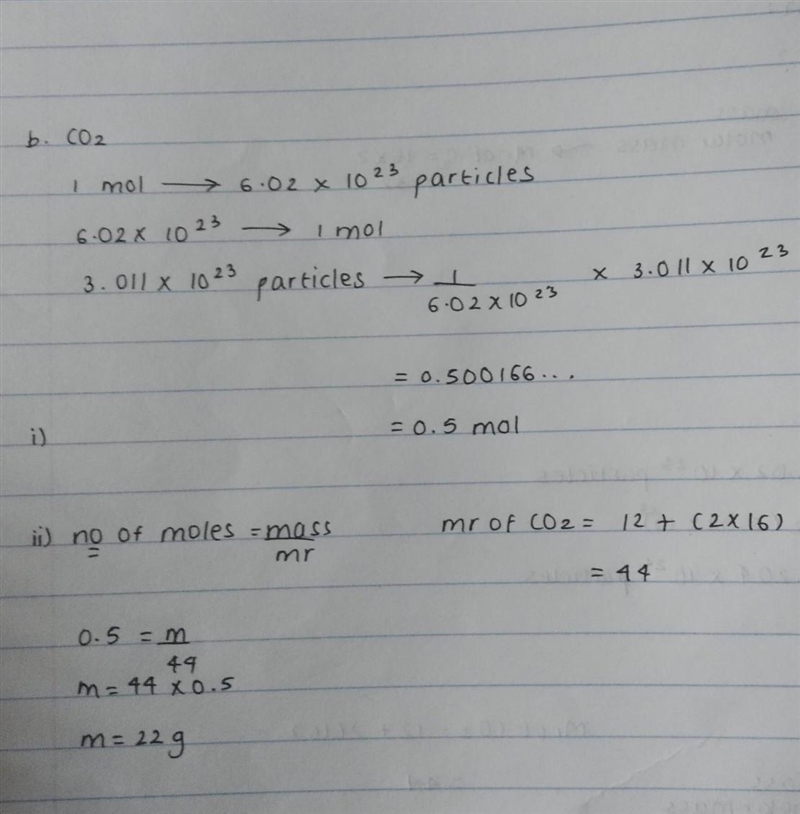 b. CO2
1 mol → 6.02 x 10²³ particles
6.02 x 10²³ → 1 mol
3.011 x 10²³ particles → 1/6.02 x 10²³ x 3.011 x 10²³
= 0.500166...
i) = 0.5 mol
ii) no of moles = mass/mr mr of CO2 = 12 + (2x16)
= 44
0.5 = m/44
m = 44 x 0.5
m = 22 g